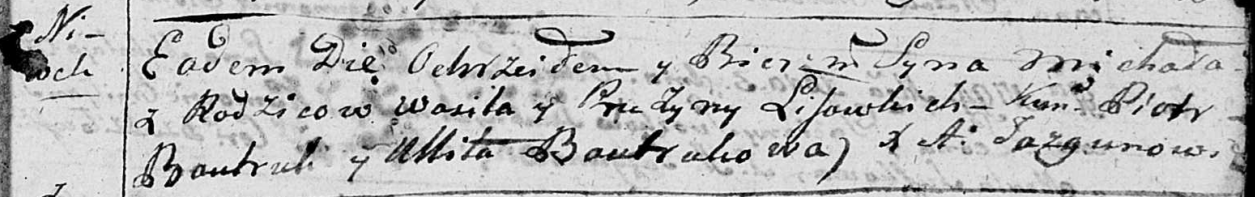 Ni-
och
Eodem Die Ochrzciłem y Bierzm Syna Michała
z Rodzicow Wasila y Pruzyny Lisowskich - Kum: Piotr
Bautruk y Ullita Bautrukowa) X A: